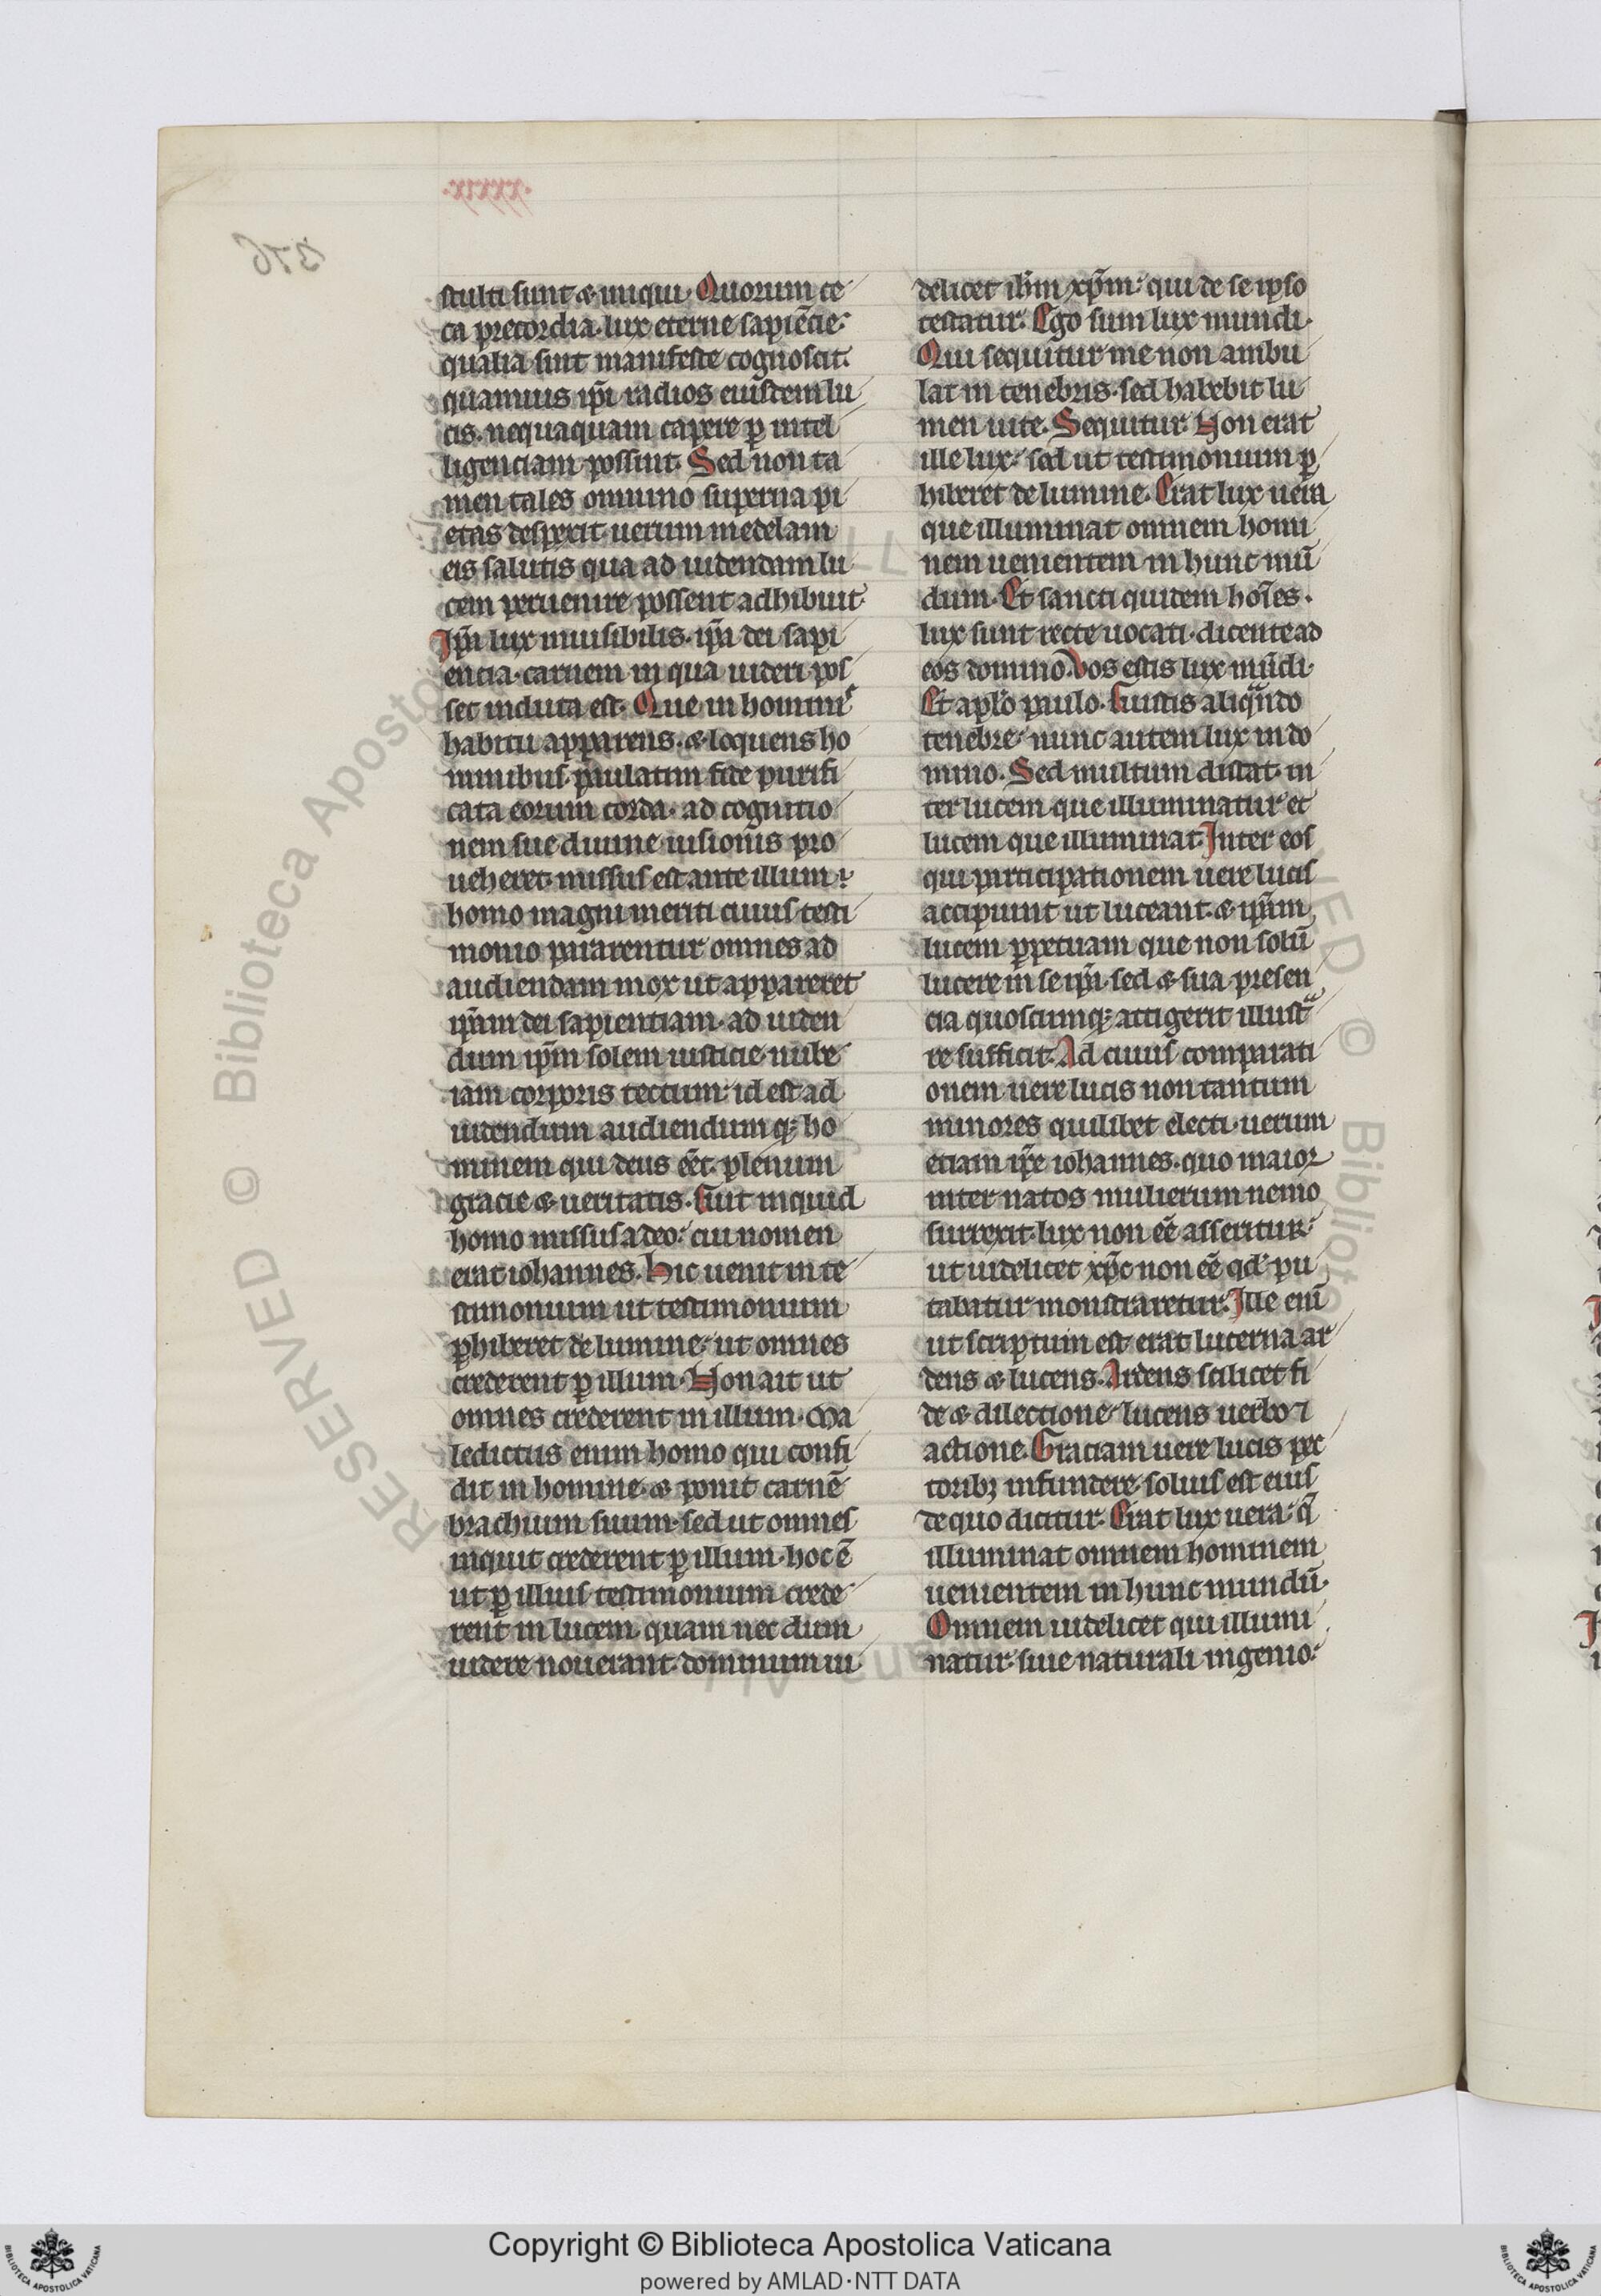 stulti sunt & iniqui. Quorum ce
ca precordia. lux eterne sapiẽcie:
qualia sint manifeste cognoscit.
quamuis ip̃i radios eiusdem lu
cis. nequaquam capere ꝑ intel
ligenciam possint. Sed non ta
men tales omnino superna pi
etas despexit. uerum medelam
eis salutis qua ad uidendam lu
cem peruenire possent adhibuit.
Ip̃a lux inuisibilis. ip̃a dei sapi
encia. carnem in qua uideri pos
set induta est. Que in hominis
habitu apparens. & loquens ho
minibus. paulatim fide purifi
cata eorum corda. ad cognitio
nem sue diuine uisionis pro
ueheret. missus est ante illum:
homo magni meriti cuius testi
monio pararentur omnes ad
audiendam mox ut appareret
ip̃am dei sapientiam. ad uiden
dum ip̃m solem iusticie. nube
iam corporis tectum: id est ad
uidendum audiendumq; ho
minem qui deus eẽt. plenum
gracie & ueritatis. Fuit inquid
homo missus a deo: cui nomen
erat iohannes. Hic uenit in te
stimonium ut testimonium
ꝑhiberet de lumine: ut omnes
crederent ꝑ illum. Non ait ut
omnes crederent in illum. Ma
ledictus enim homo qui confi
dit in homine. & ponit carnẽ
brachium suum. sed ut omnes
inquit crederent ꝑ illum. hoc ẽ
ut ꝑ illius testimonium crede
rent in lucem. quam nec dum
uidere nouerant. dominum ui
delicet ih̃m xp̃m: qui de se ipso
testatur. Ego sum lux mundi.
Qui sequitur me non ambu
lat in tenebris. sed habebit lu
men uite. Sequitur. Non erat
ille lux: sed ut testimonium ꝑ
hiberet de lumine. Erat lux uera
que illuminat omnem homi
nem uenientem in hunc mũ
dum. Et sancti quidem hoĩes.
lux sunt recte uocati. dicente ad
eos domino. Vos estis lux mũdi.
Et aplo paulo. Fuistis aliqᵃndo
tenebre: nunc autem lux in do
mino. Sed multum distat. in
ter lucem que illuminatur et
lucem que illuminat. Inter eos
qui participationem uere lucis
accipiunt ut luceant. & ip̃am
lucem ꝑpetuam que non solũ
lucere in se ip̃a. sed & sua presen
cia quoscumq; attigerit illustᵃ
re sufficit. Ad cuius comparati
onem uere lucis non tantum
minores quilibet electi. uerum
etiam ip̃e iohannes. quo maior
inter natos mulierum nemo
surrexit. lux non eẽ asseritur:
ut uidelicet xp̃c non eẽ qd' pu
tabatur monstraretur. Ille enĩ
ut scriptum est erat lucerna ar
dens & lucens. Ardens scilicet fi
de & dilectione. lucens uerbo ⁊
actione. Graciam uere lucis pec
toribꝫ infundere. solius est eius
de quo dicitur. Erat lux uera: q̃
illuminat omnem hominem
uenientem in hunc mundũ.
Omnem uidelicet qui illumi
natur. siue naturali ingenio:
Copyright © Biblioteca Apostolica Vaticana
powered by AMLAD·NTT DATA